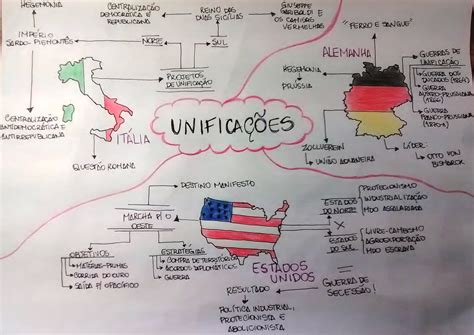 HEGEMONIA
IMPÉRIO
SARDO-PIEMONTÊS
CENTRALIZAÇÃO
DEMOCRÁTICA E
REPUBLICANA
NORTE
REINO DAS
DUAS SICÍLIAS
SUL
GIUSEPPE
GARIBALDI E OS
CAMISAS
VERMELHAS
PROJETOS
DE UNIFICAÇÃO
CENTRALIZAÇÃO
ANTIDEMOCRÁTICA E
ANTIRREPUBLICANA
ITÁLIA
QUESTÃO ROMANA
UNIFICAÇÕES
"FERRO E SANGUE"
ALEMANHA
HEGEMONIA
PRÚSSIA
GUERRAS DE
UNIFICAÇÃO
GUERRA DOS
DUCADOS (1864)
GUERRA
AUSTRO-PRUSSIANA
(1866)
GUERRA
FRANCO-PRUSSIANA
ZOLLVEREIN
UNIÃO ADUANEIRA
LÍDER:
OTTO VON
BISMARCK
DESTINO MANIFESTO
MARCHA P/ O
OESTE
OBJETIVOS
MATÉRIAS-PRIMAS
CORRIDA DO OURO
SAÍDA P/ O PACÍFICO
ESTRATÉGIAS
COMPRA DE TERRITÓRIO
ACORDOS DIPLOMÁTICOS
GUERRA
ESTADOS
UNIDOS
ESTADOS
DO NORTE
PROTECIONISMO
INDUSTRIALIZAÇÃO
MDO ASSALARIADA
X
ESTADOS
DO SUL
LIVRE-CAMBISMO
AGROEXPORTAÇÃO
MDO ESCRAVA
GUERRA DE
SECESSÃO!
RESULTADO
POLÍTICA INDUSTRIAL,
PROTECIONISTA E
ABOLICIONISTA